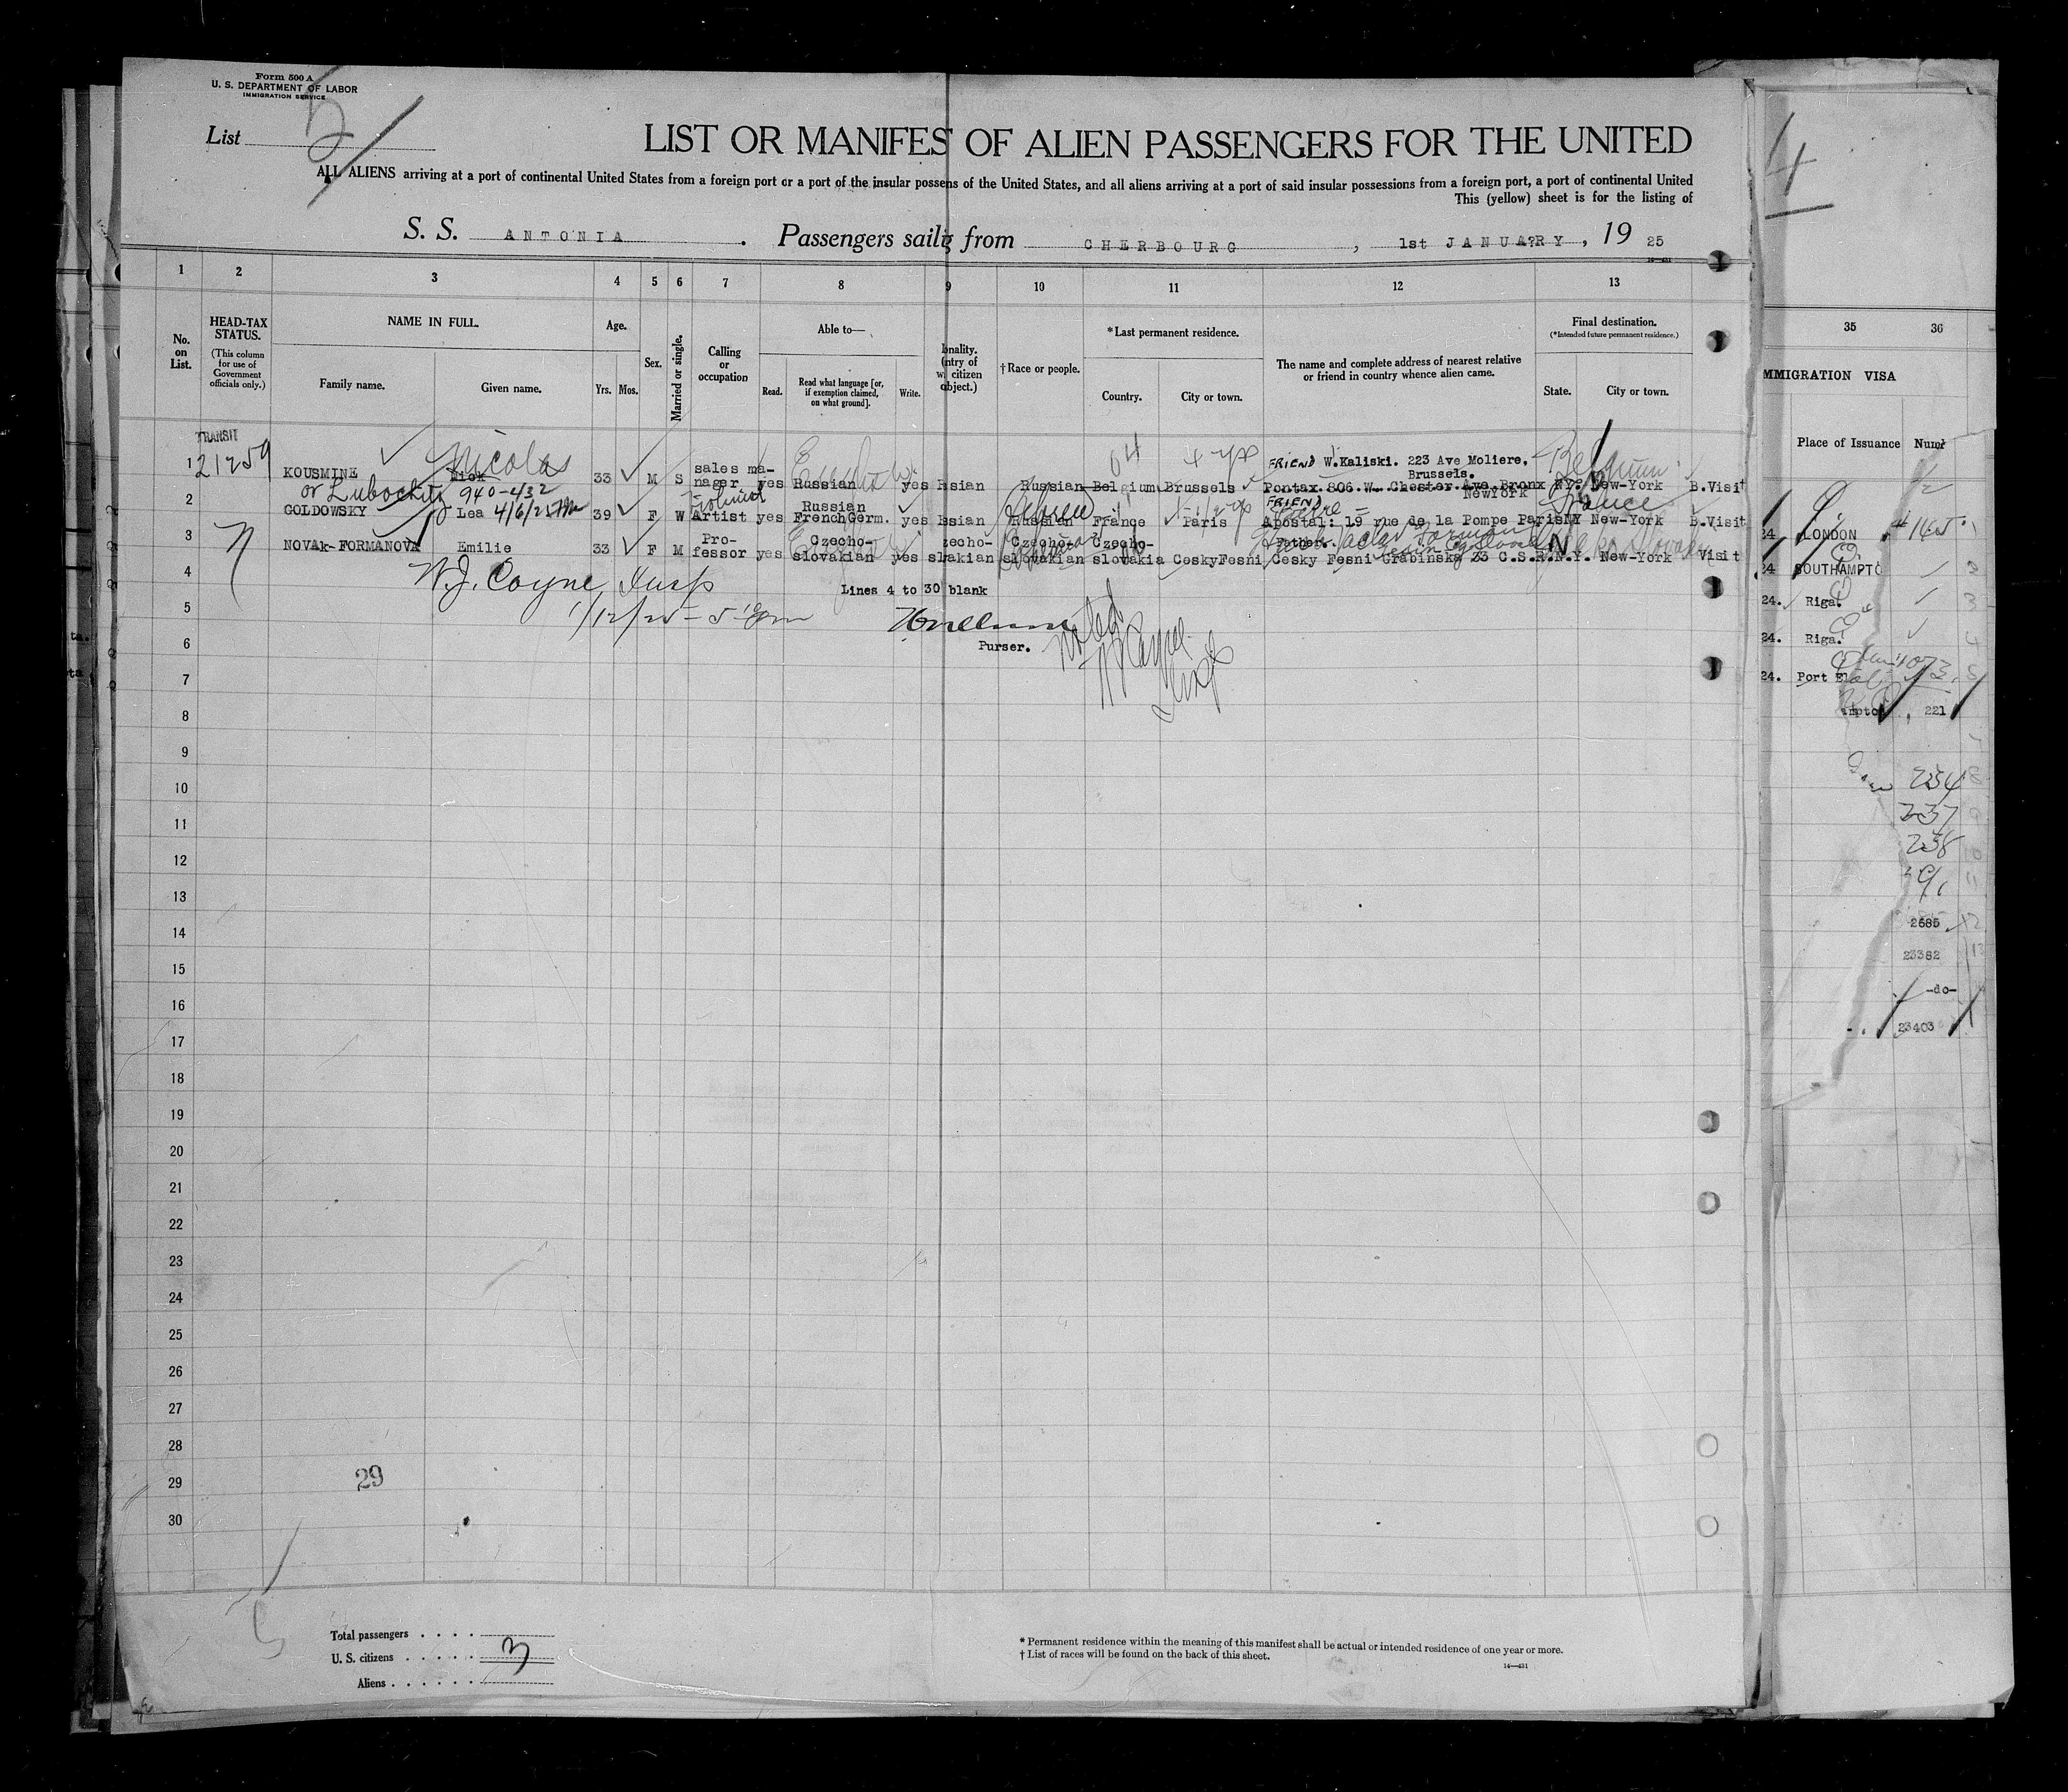 Form 500 A
U. S. DEPARTMENT OF LABOR
IMMIGRATION SERVICE
List 2
4
LIST OR MANIFES OF ALIEN PASSENGERS FOR THE UNITED
ALL ALIENS arriving at a port of continental United States from a foreign port or a port of the insular possens of the United States, and all aliens arriving at a port of said insular possessions from a foreign port, a port of continental United
This (yellow) sheet is for the listing of
S. S. ANTONIA . Passengers sailig from CHERBOURG , 1st JANUARY , 19 25
1 2 3 4 5 6 7 8 9 10 11 12 13
35 36
No. on List.
HEAD-TAX STATUS.
(This column for use of Government officials only.)
NAME IN FULL.
Family name. Given name.
Age.
Yrs. Mos.
Sex.
Married or single.
Calling or occupation
Able to—
Read. Read what language [or, if exemption claimed, on what ground]. Write.
onality.
(ntry of
w citizen
object.)
† Race or people.
* Last permanent residence.
Country. City or town.
The name and complete address of nearest relative or friend in country whence alien came.
Final destination.
(*Intended future permanent residence.)
State. City or town.
MMIGRATION VISA
Place of Issuance Numb
TRANSIT
1 21259 KOUSMINE Nick Nicolas 33 M S sales manager yes Russian yes Rsian Russian Belgium Brussels FRIEND W.Kaliski. 223 Ave Moliere, Brussels. Pontax 806 W. Chester Ave Bronx NY. New-York B.Visit
NewYork
Belgium
or Lubochitz 940-432
4/6/25
2 GOLDOWSKY Lea 39 F W Artist yes Russian FrenchGerm. yes ssian Russian Hebrew France Paris FRIEND Apostal: 19 rue de la Pompe Paris NY New-York B.Visit
France
3 NOVAk-FORMANOVA Emilie 33 F M Pro-fessor yes Czecho-slovakian yes zecho-slvakian Czecho-slovakian Czecho-slovakia CeskyFesni Father. Cesky Fesni Grabinska 33 C.S.R. N.Y. New-York Visit
4 W.J. Coyne Insp
Lines 4 to 30 blank
5 1/12/25 - 5 pm
6 Purser.
7
8
9
10
11
12
13
14
15
16
17
18
19
20
21
22
23
24
25
26
27
28
29
30
29
24 LONDON 4165
24 SOUTHAMPTO
24. Riga.
24. Riga.
24. Port El
mpton 221
234
237
238
2685
23382
-do-
23403
Total passengers . . . .
U. S. citizens . . . . . 3
Aliens . . . . . .
* Permanent residence within the meaning of this manifest shall be actual or intended residence of one year or more.
† List of races will be found on the back of this sheet.
14—431